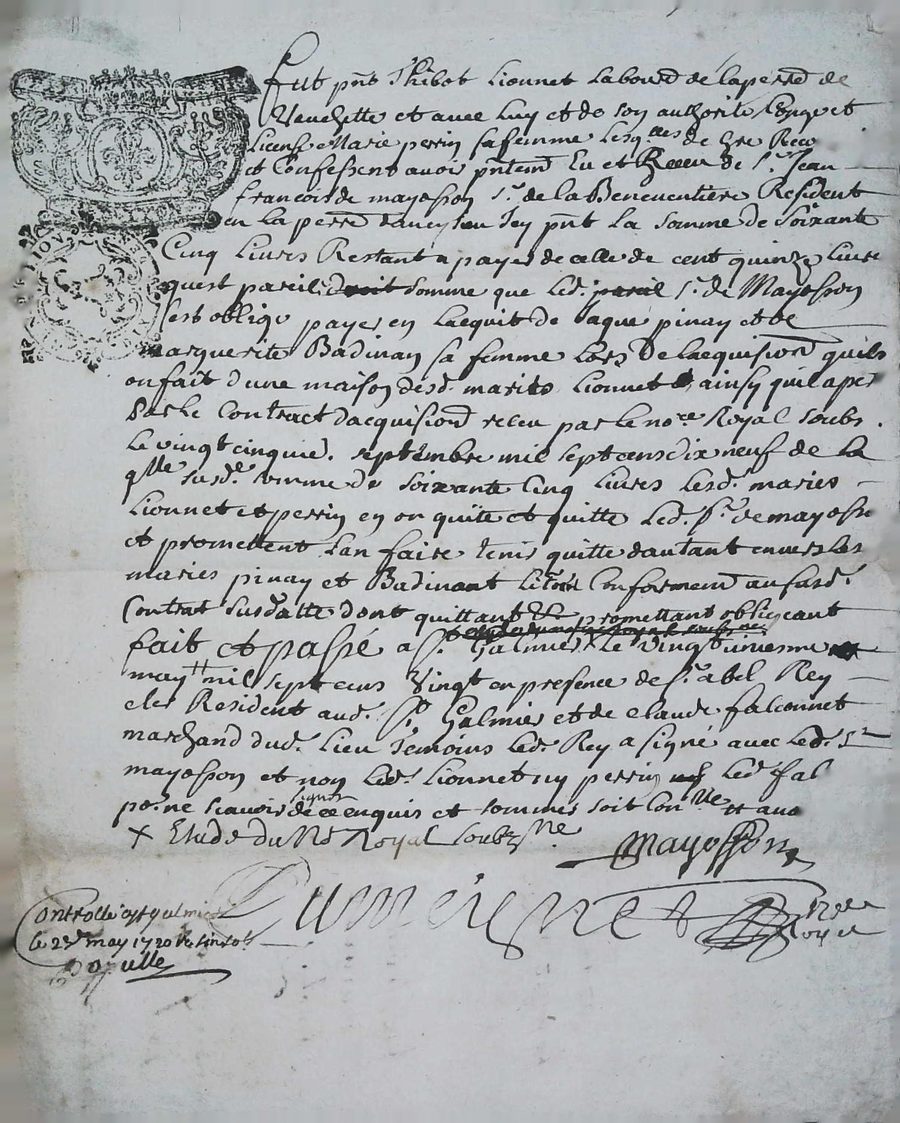 Fut pnt Thibot Lionnet Labour de la perrd de
Veuchette et avec Luy et de son authorité Congé et
License Marie perrin sa femme Lesqlles de gre Reco
et Confessent avoir pntemt Eu et Receu de Sr. Jean
francois de mayosson Sr. de la Benevantiere Resident
en la perre icy pnt La somme de Soixante
Cinq Livres Restant a payer de celle de cent quinze Livre
quest pareil somme que Led. Sr. de Mayosson
sest oblige payer en Lacquit de Jaque pinay et de
marguerite Badinan sa femme Lors De Lacquision quils
on fait dune maison desd. mariés Lionnet ainsy quil aper
par Le Contract dacquision receu par Le nore Royal soubs.
Le vingt cinquie. septembre mil sept cens dix neuf de La
qlle susde. somme de soixante Cinq Livres Lesd. mariés
Lionnet et perrin en on quité et quitte Led. Sr. de mayosso
et promettent Len faire tenir quitte dautant envers Les
mariés pinay et Badinant Conformemt au susd.
Contrat susdatte dont quittant &c promettant obligeant
fait et passé a St. Galmier Le vingt uniesme
may ++ mil sept cens Vingt en presence de Sr. abel Rey
clerc Resident aud. St. Galmier et de claude falconnet
marchand dud. Lieu temoins Led. Rey a signé avec Led. Sr
mayosson et non Led. Lionnet ny perrin Led. fal
pour ne scavoir signer de ce enquis et sommés soit Conlle
+ Etude du No Royal soubzne
Mayosson
Dumeignet Nre
Royal
Controllé a St galmier
le 23e may 1720